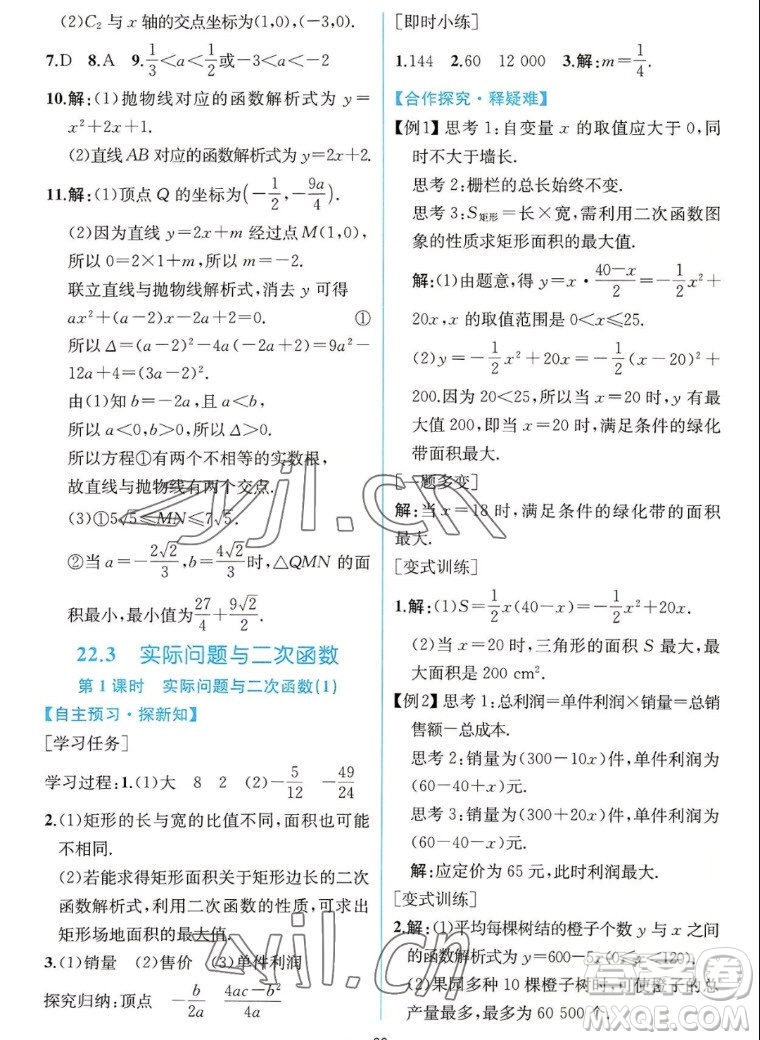 (2)C₂ 与 x 轴的交点坐标为(1,0),(-3,0).
7.D 8.A 9. 1/3<a<1/2或-3<a<-2
10.解:(1)抛物线对应的函数解析式为 y=
x²+2x+1.
(2)直线 AB 对应的函数解析式为 y=2x+2.
11.解:(1)顶点 Q 的坐标为(-1/2,-9a/4).
(2)因为直线 y=2x+m 经过点 M(1,0),
所以 0=2×1+m,所以 m=-2.
联立直线与抛物线解析式,消去 y 可得
ax²+(a-2)x-2a+2=0. ①
所以 Δ=(a-2)²-4a(-2a+2)=9a²-
12a+4=(3a-2)².
由(1)知 b=-2a,且 a<b,
所以 a<0,b>0,所以 Δ>0,
所以方程①有两个不相等的实数根,
故直线与抛物线有两个交点.
(3)①5√5≤MN≤7√5.
②当 a=-2√2/3,b=4√2/3时,△QMN 的面
积最小,最小值为27/4+9√2/2.
22.3 实际问题与二次函数
第 1 课时 实际问题与二次函数(1)
【自主预习·探新知】
[学习任务]
学习过程:1.(1)大 8 2 (2)-5/12 -49/24
2.(1)矩形的长与宽的比值不同,面积也可能
不相同.
(2)若能求得矩形面积关于矩形边长的二次
函数解析式,利用二次函数的性质,可求出
矩形场地面积的最大值.
3.(1)销量 (2)售价 (3)单件利润
探究归纳:顶点 -b/2a (4ac-b²)/4a
[即时小练]
1.144 2.60 12 000 3.解:m=1/4.
【合作探究·释疑难】
【例1】思考 1:自变量 x 的取值应大于 0,同
时不大于墙长.
思考 2:栅栏的总长始终不变.
思考 3:S矩形=长×宽,需利用二次函数图
象的性质求矩形面积的最大值.
解:(1)由题意,得 y=x·(40-x)/2=-1/2x²+
20x,x 的取值范围是 0<x≤25.
(2)y=-1/2x²+20x=-1/2(x-20)²+
200.因为 20<25,所以当 x=20 时,y 有最
大值 200,即当 x=20 时,满足条件的绿化
带面积最大.
[一题多变]
解:当 x=18 时,满足条件的绿化带的面积
最大.
[变式训练]
1.解:(1)S=1/2x(40-x)=-1/2x²+20x.
(2)当 x=20 时,三角形的面积 S 最大,最
大面积为 200 cm².
【例2】思考 1:总利润=单件利润×销量=总销
售额-总成本.
思考 2:销量为(300-10x)件,单件利润为
(60-40+x)元.
思考 3:销量为(300+20x)件,单件利润为
(60-40-x)元.
解:应定价为 65 元,此时利润最大.
[变式训练]
2.解:(1)平均每棵树结的橙子个数 y 与 x 之间
的函数解析式为 y=600-5x(0≤x<120).
(2)果园多种 10 棵橙子树时,可使橙子的总
产量最多,最多为 60 500 个.
zyjl.cn
zyjl.cn